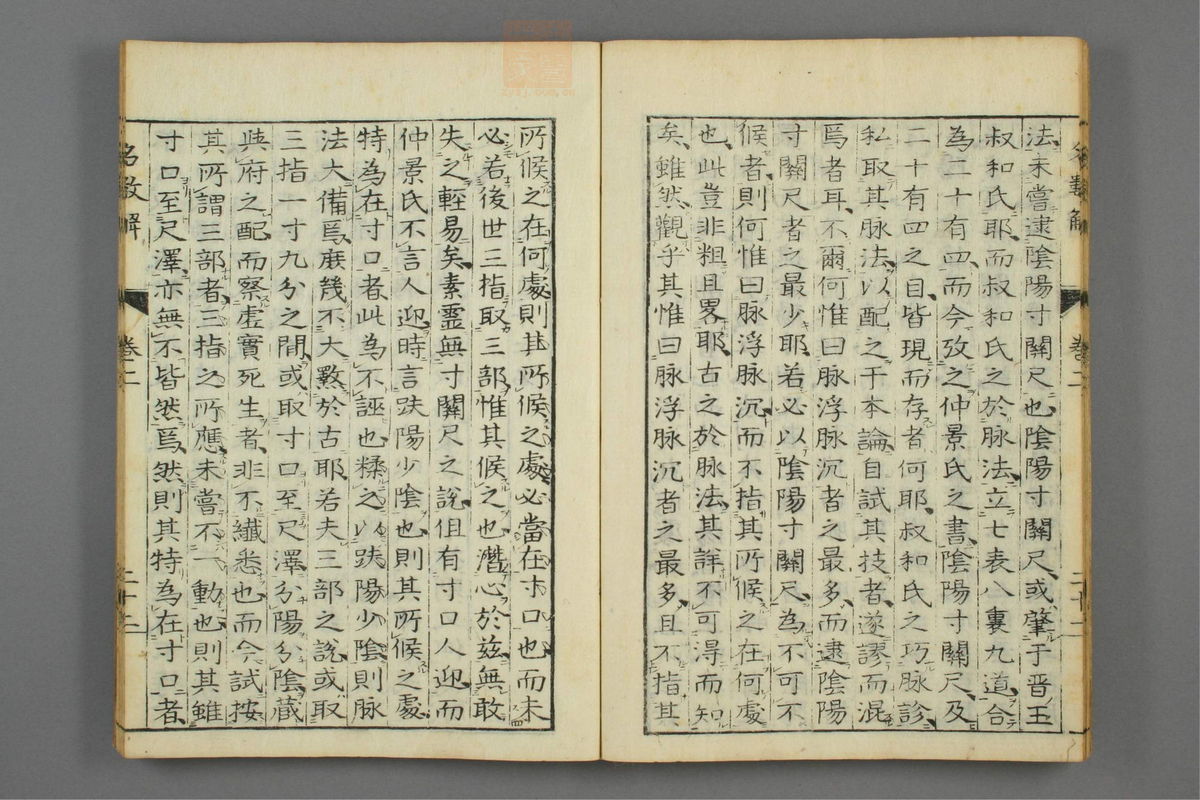 法未嘗逮陰陽寸關尺也陰陽寸關尺或肇于晉王
叔和氏耶而叔和氏之於脉法立七表八裏九道合
為二十有四而今攷之仲景氏之書陰陽寸關尺及
二十有四之目皆現而存者何耶叔和氏之巧脉診
私取其脉法以配之于本論自試其技者遂謬而混
焉者耳不爾何惟曰脉浮脉沉者之最多而逮陰陽
寸關尺者之最少耶若必以陰陽寸關尺為不可不
候者則何惟曰脉浮脉沉而不指其所候之在何處
也此豈非粗且畧耶古之於脉法其詳不可得而知
矣雖然觀乎其惟曰脉浮脉沉者之最多且不指其
卷二
二十二
所候之在何處則其所候之處必當在寸口也而未
必若後世三指取三部惟其候之也潛心於茲無敢
失之輕易矣素靈無寸關尺之說但有寸口人迎而
仲景氏不言人迎時言趺陽少陰也則其所候之處
特為在寸口者此為不誣也糅之以趺陽少陰則脉
法大備焉庶幾不大斁於古耶若夫三部之說或取
三指一寸九分之間或取寸口至尺澤分陽分陰藏
與府之配而察虛實死生者非不纖悉也而今試按
其所謂三部者三指之所應未嘗不一動也則其雖
寸口至尺澤亦無不皆然焉然則其特為在寸口者
名數解
卷二
二十三